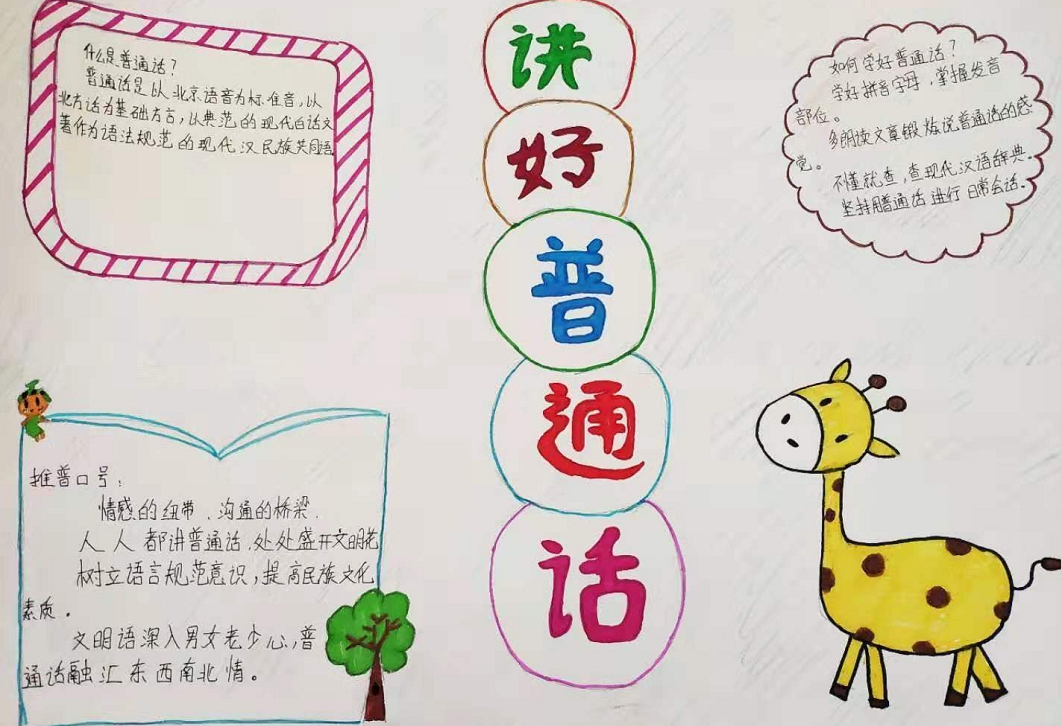 讲
好
普
通
话
什么是普通话？
普通话是以北京语音为标准音，以
北方话为基础方言，以典范的现代白话文
著作为语法规范的现代汉民族共同语
如何学好普通话？
学好拼音字母，掌握发音
部位。
多朗读文章锻炼说普通话的感
觉。
不懂就查，查现代汉语辞典。
坚持用普通话进行日常会话。
推普口号：
情感的纽带、沟通的桥梁.
人人都讲普通话，处处盛开文明花
树立语言规范意识，提高民族文化
素质。
文明语深入男女老少心，普
通话融汇东西南北情。